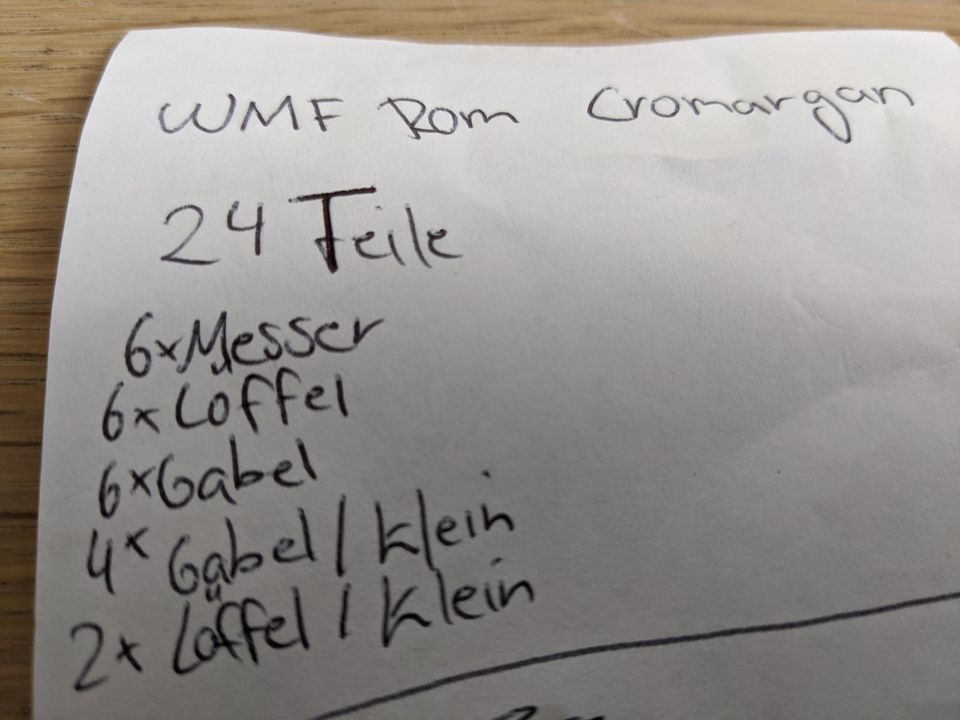 WMF Rom Cromargan
24 Teile
6x Messer
6x Löffel
6x Gabel
4x Gabel / klein
2x Löffel / klein